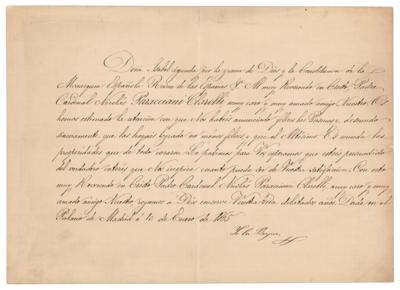 Doña Isabel segunda por la gracia de Dios y la Constitucion de la
Monarquia Española Reina de las Españas & Al muy Reverendo en Cristo Padre
Cardenal Nicolás Paracciani Clarelli muy caro y muy amado amigo Nuestro. Os
hemos estimado la atencion con que Nos habeis anunciado felices las Pascuas, deseando
sinceramente que las hayais logrado no menos felices y que el Altísimo Os
prosperidades que de todo corazon Os
del verdadero interés que Nos inspira cuanto puede ser de Vuestra satisfaccion. Con esto
muy Reverendo en Cristo Padre Cardenal Nicolás Paracciani Clarelli, muy caro y muy
amado amigo Nuestro rogamos a Dios conserve Vuestra vida dilatados años. Dada en el
Palacio de Madrid á de Enero de
Yo la Reyna